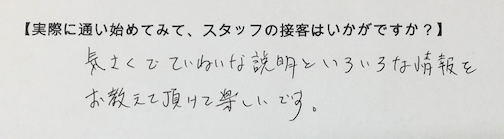 【実際に通い始めてみて、スタッフの接客はいかがですか？】
気さくでていねいな説明といろいろな情報を
お教えて頂けて楽しいです。